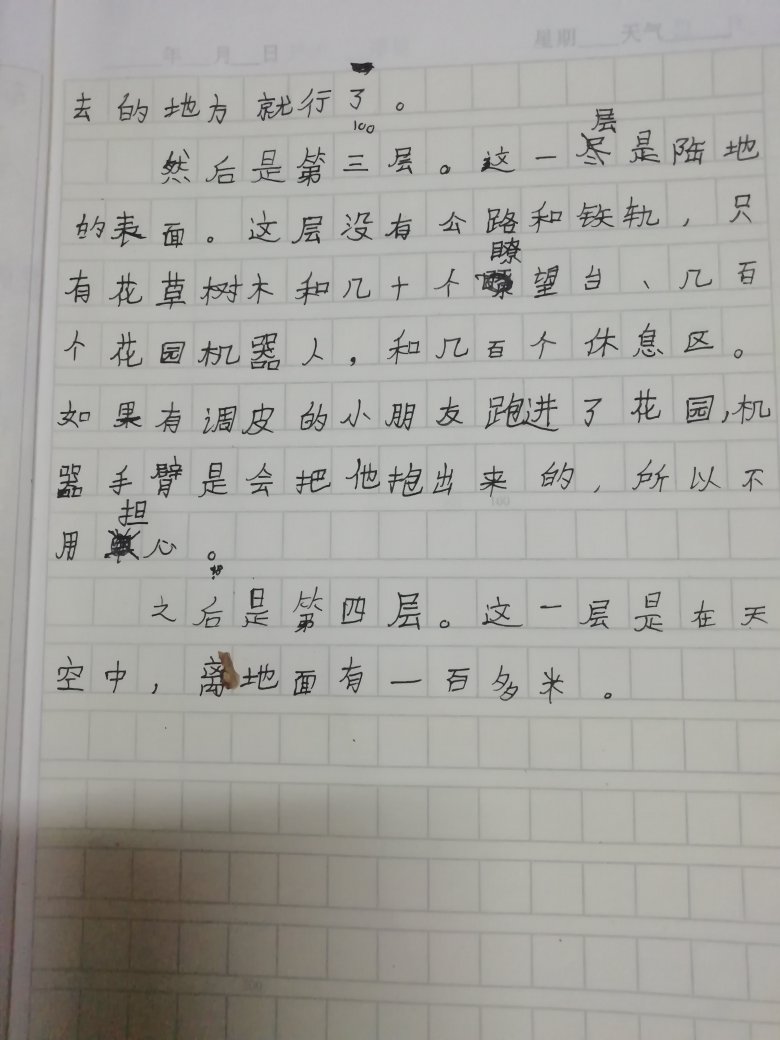 年 月 日 星期 天气
去的地方就行了。
100
然后是第三层。这一层是陆地
的表面。这层没有公路和铁轨，只
有花草树木和几十个瞭望台、几百
个花园机器人，和几百个休息区。
如果有调皮的小朋友跑进了花园,机
器手臂是会把他抱出来的，所以不
100
用担心。
之后是第四层。这一层是在天
空中，离地面有一百多米。
200